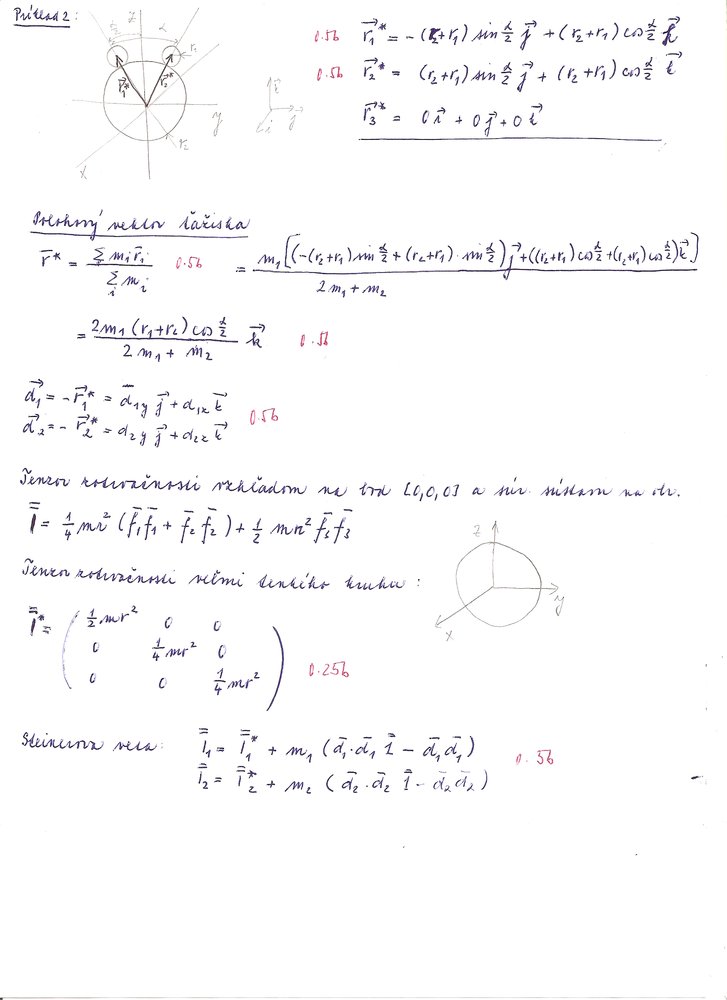 Príklad 2:
z
α/2 α
r₁
r⃗₁* r⃗₂*
y
r₂
x
k⃗
i⃗ j⃗
0.5b r⃗₁* = -(r₂+r₁) sin α/2 j⃗ + (r₂+r₁) cos α/2 k⃗
0.5b r⃗₂* = (r₂+r₁) sin α/2 j⃗ + (r₂+r₁) cos α/2 k⃗
r⃗₃* = 0i⃗ + 0j⃗ + 0k⃗
Polohový vektor ťažiska
r̄* = Σᵢ mᵢr̄ᵢ / Σᵢ mᵢ 0.5b = m₁[(-(r₂+r₁) sin α/2 + (r₂+r₁)·sin α/2) j⃗ + ((r₂+r₁) cos α/2 + (r₂+r₁) cos α/2) k⃗] / 2m₁+m₂
= 2m₁(r₁+r₂) cos α/2 / 2m₁+m₂ k⃗ 0.5b
d⃗₁ = -r⃗₁* = d₁y j⃗ + d₁z k⃗
d⃗₂ = -r⃗₂* = d₂y j⃗ + d₂z k⃗ 0.5b
Tenzor zotrvačnosti vzhľadom na bod [0,0,0] a súr. sústam na obr.
I̿ = 1/4 mr² (f̄₁f̄₁ + f̄₂f̄₂) + 1/2 mr² f̄₃f̄₃
Tenzor zotrvačnosti veľmi tenkého kruhu:
z
y
x
I̿* = ( 1/2 mr² 0 0
0 1/4 mr² 0
0 0 1/4 mr² ) 0.25b
Steinerova veta: I̿₁ = I̿₁* + m₁ (d̄₁·d̄₁ 1̿ - d̄₁d̄₁) 0.5b
I̿₂ = I̿₂* + m₂ (d̄₂·d̄₂ 1̿ - d̄₂d̄₂)